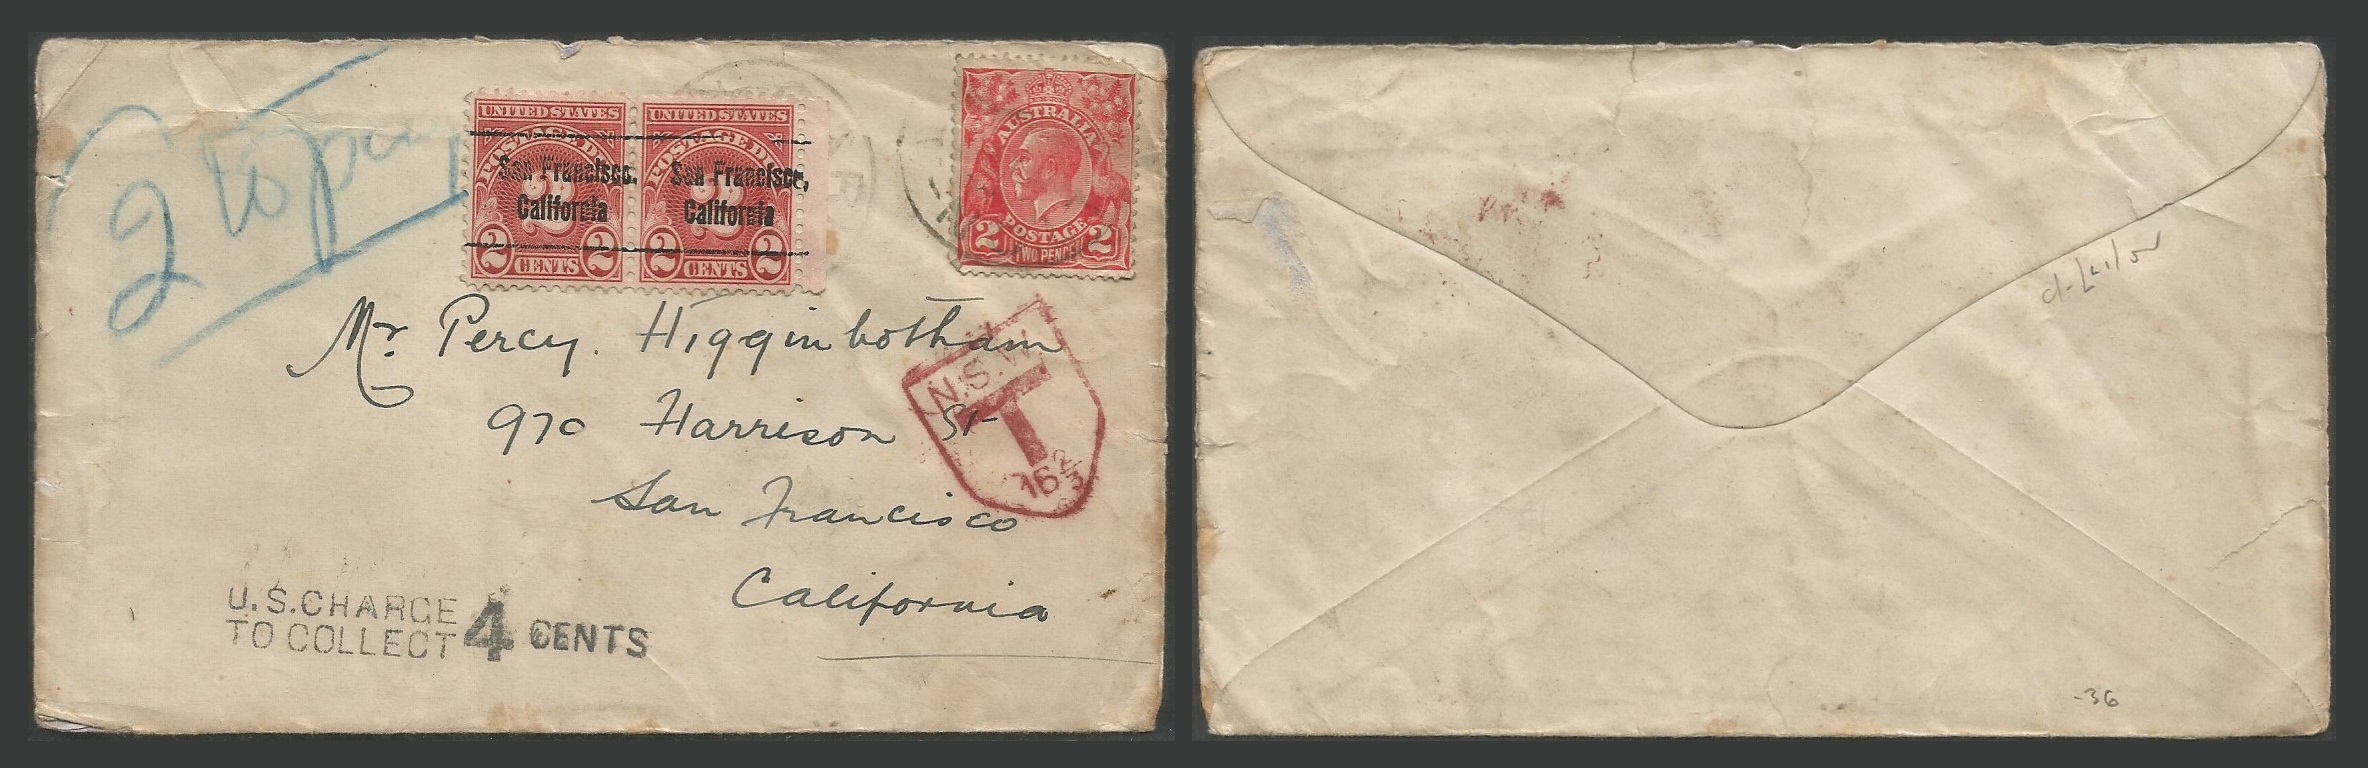 2 to pay
UNITED STATES UNITED STATES
POSTAGE D POSTAGE D
San Francisco, San Francisco,
California California
2 CENTS 2 2 CENTS 2
AUSTRALIA
POSTAGE
2 TWO PENCE 2
Mr. Percy. Higginbotham
970 Harrison St
San Francisco
California
N.S.W.
T
16 2/3
U.S.CHARGE
TO COLLECT 4 CENTS
-36